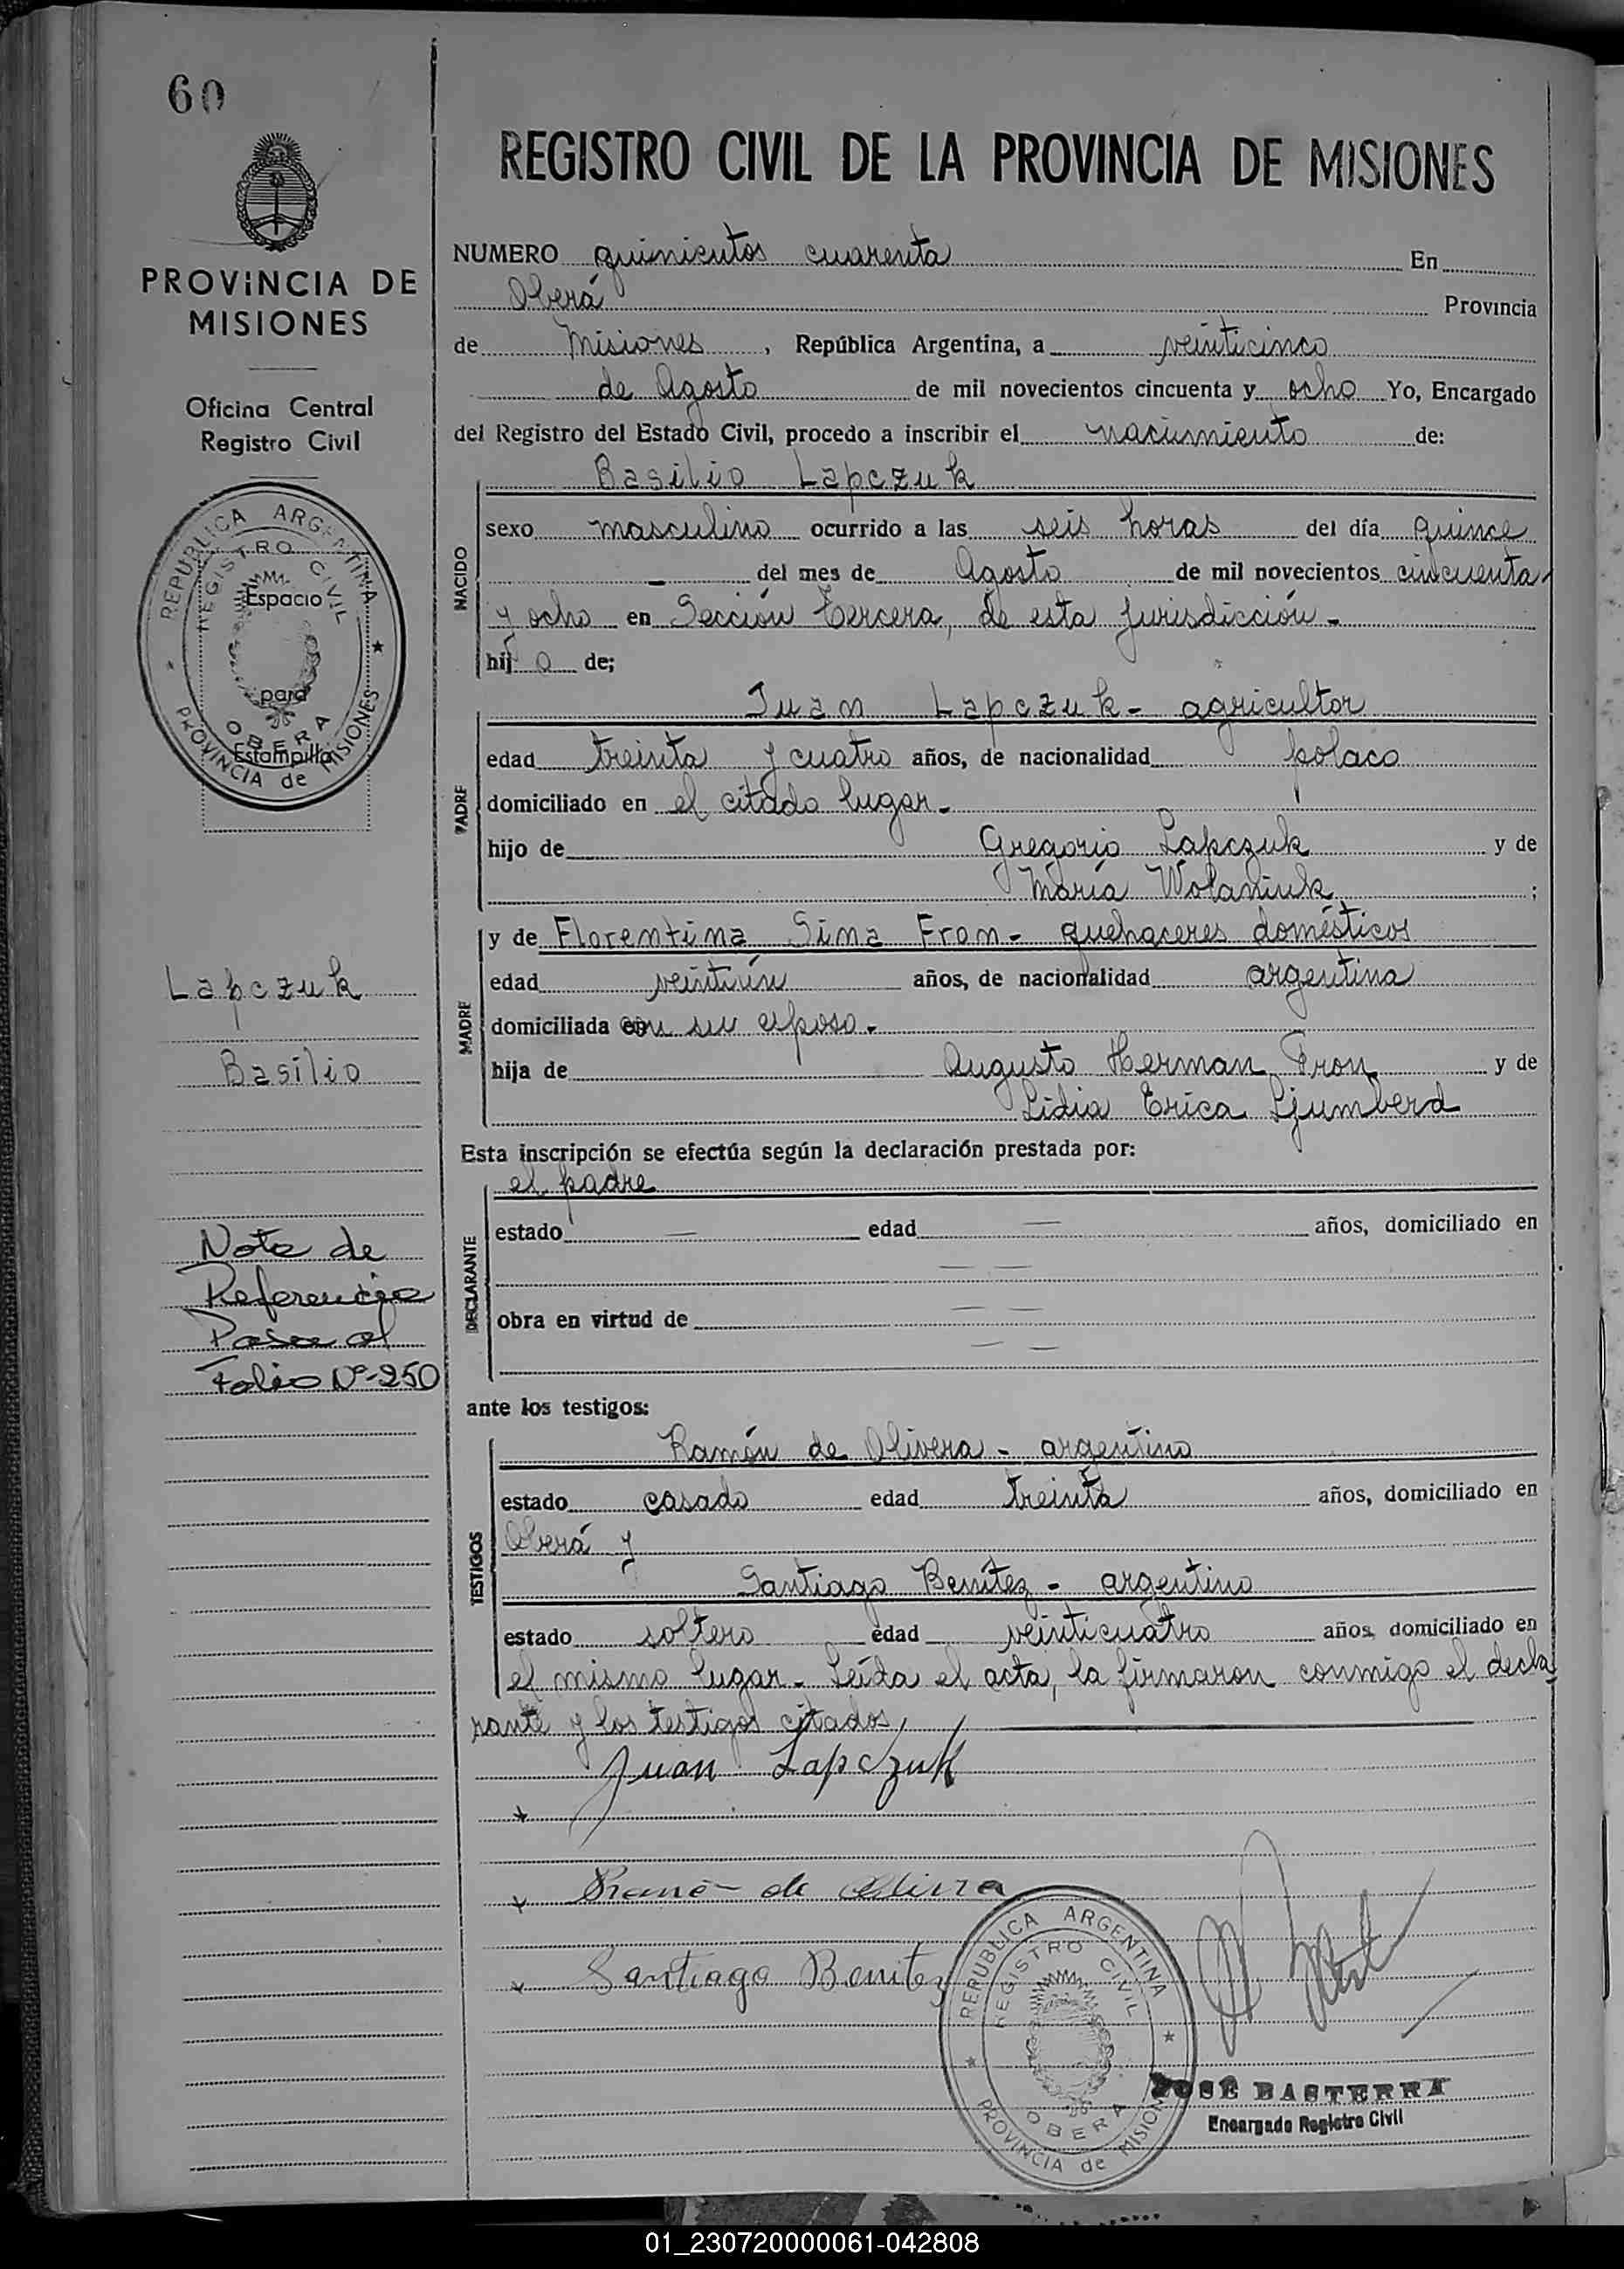 60
PROVINCIA DE
MISIONES
Oficina Central
Registro Civil
REPUBLICA ARGENTINA
REGISTRO CIVIL
Espacio
para
Estampilla
OBERA
PROVINCIA de MISIONES
Lapczuk
Basilio
Nota de
Referencia
Pasa al
Folio Nº-250
REGISTRO CIVIL DE LA PROVINCIA DE MISIONES
NUMERO quinientos cuarenta En
Oberá Provincia
de Misiones, República Argentina, a veinticinco
de Agosto de mil novecientos cincuenta y ocho Yo, Encargado
del Registro del Estado Civil, procedo a inscribir el nacimiento de:
Basilio Lapczuk
NACIDO
sexo masculino ocurrido a las seis horas del día quince
— del mes de Agosto de mil novecientos cincuenta
y ocho en Sección Tercera, de esta jurisdicción -
hijo de;
Juan Lapczuk - agricultor
PADRE
edad treinta y cuatro años, de nacionalidad polaco
domiciliado en el citado lugar -
hijo de Gregorio Lapczuk y de
María Wolaniuk ;
y de Florentina Sima Fron - quehaceres domésticos
MADRE
edad veintiún años, de nacionalidad argentina
domiciliada con su esposo -
hija de Augusto Herman Fron y de
Lidia Erica Ljumberd
Esta inscripción se efectúa según la declaración prestada por:
el padre
DECLARANTE
estado — edad — años, domiciliado en
— —
obra en virtud de — —
— —
ante los testigos:
Ramón de Olivera - argentino
TESTIGOS
estado casado edad treinta años, domiciliado en
Oberá y
Santiago Benitez - argentino
estado soltero edad veinticuatro años, domiciliado en
el mismo lugar - Leída el acta, la firmaron conmigo el decla
rante y los testigos citados,
Juan Lapczuk
de
Santiago Benitez
REPUBLICA ARGENTINA
REGISTRO CIVIL
OBERA
PROVINCIA de MISIONES
JOSÉ BASTERRA
Encargado Registro Civil
01_230720000061-042808